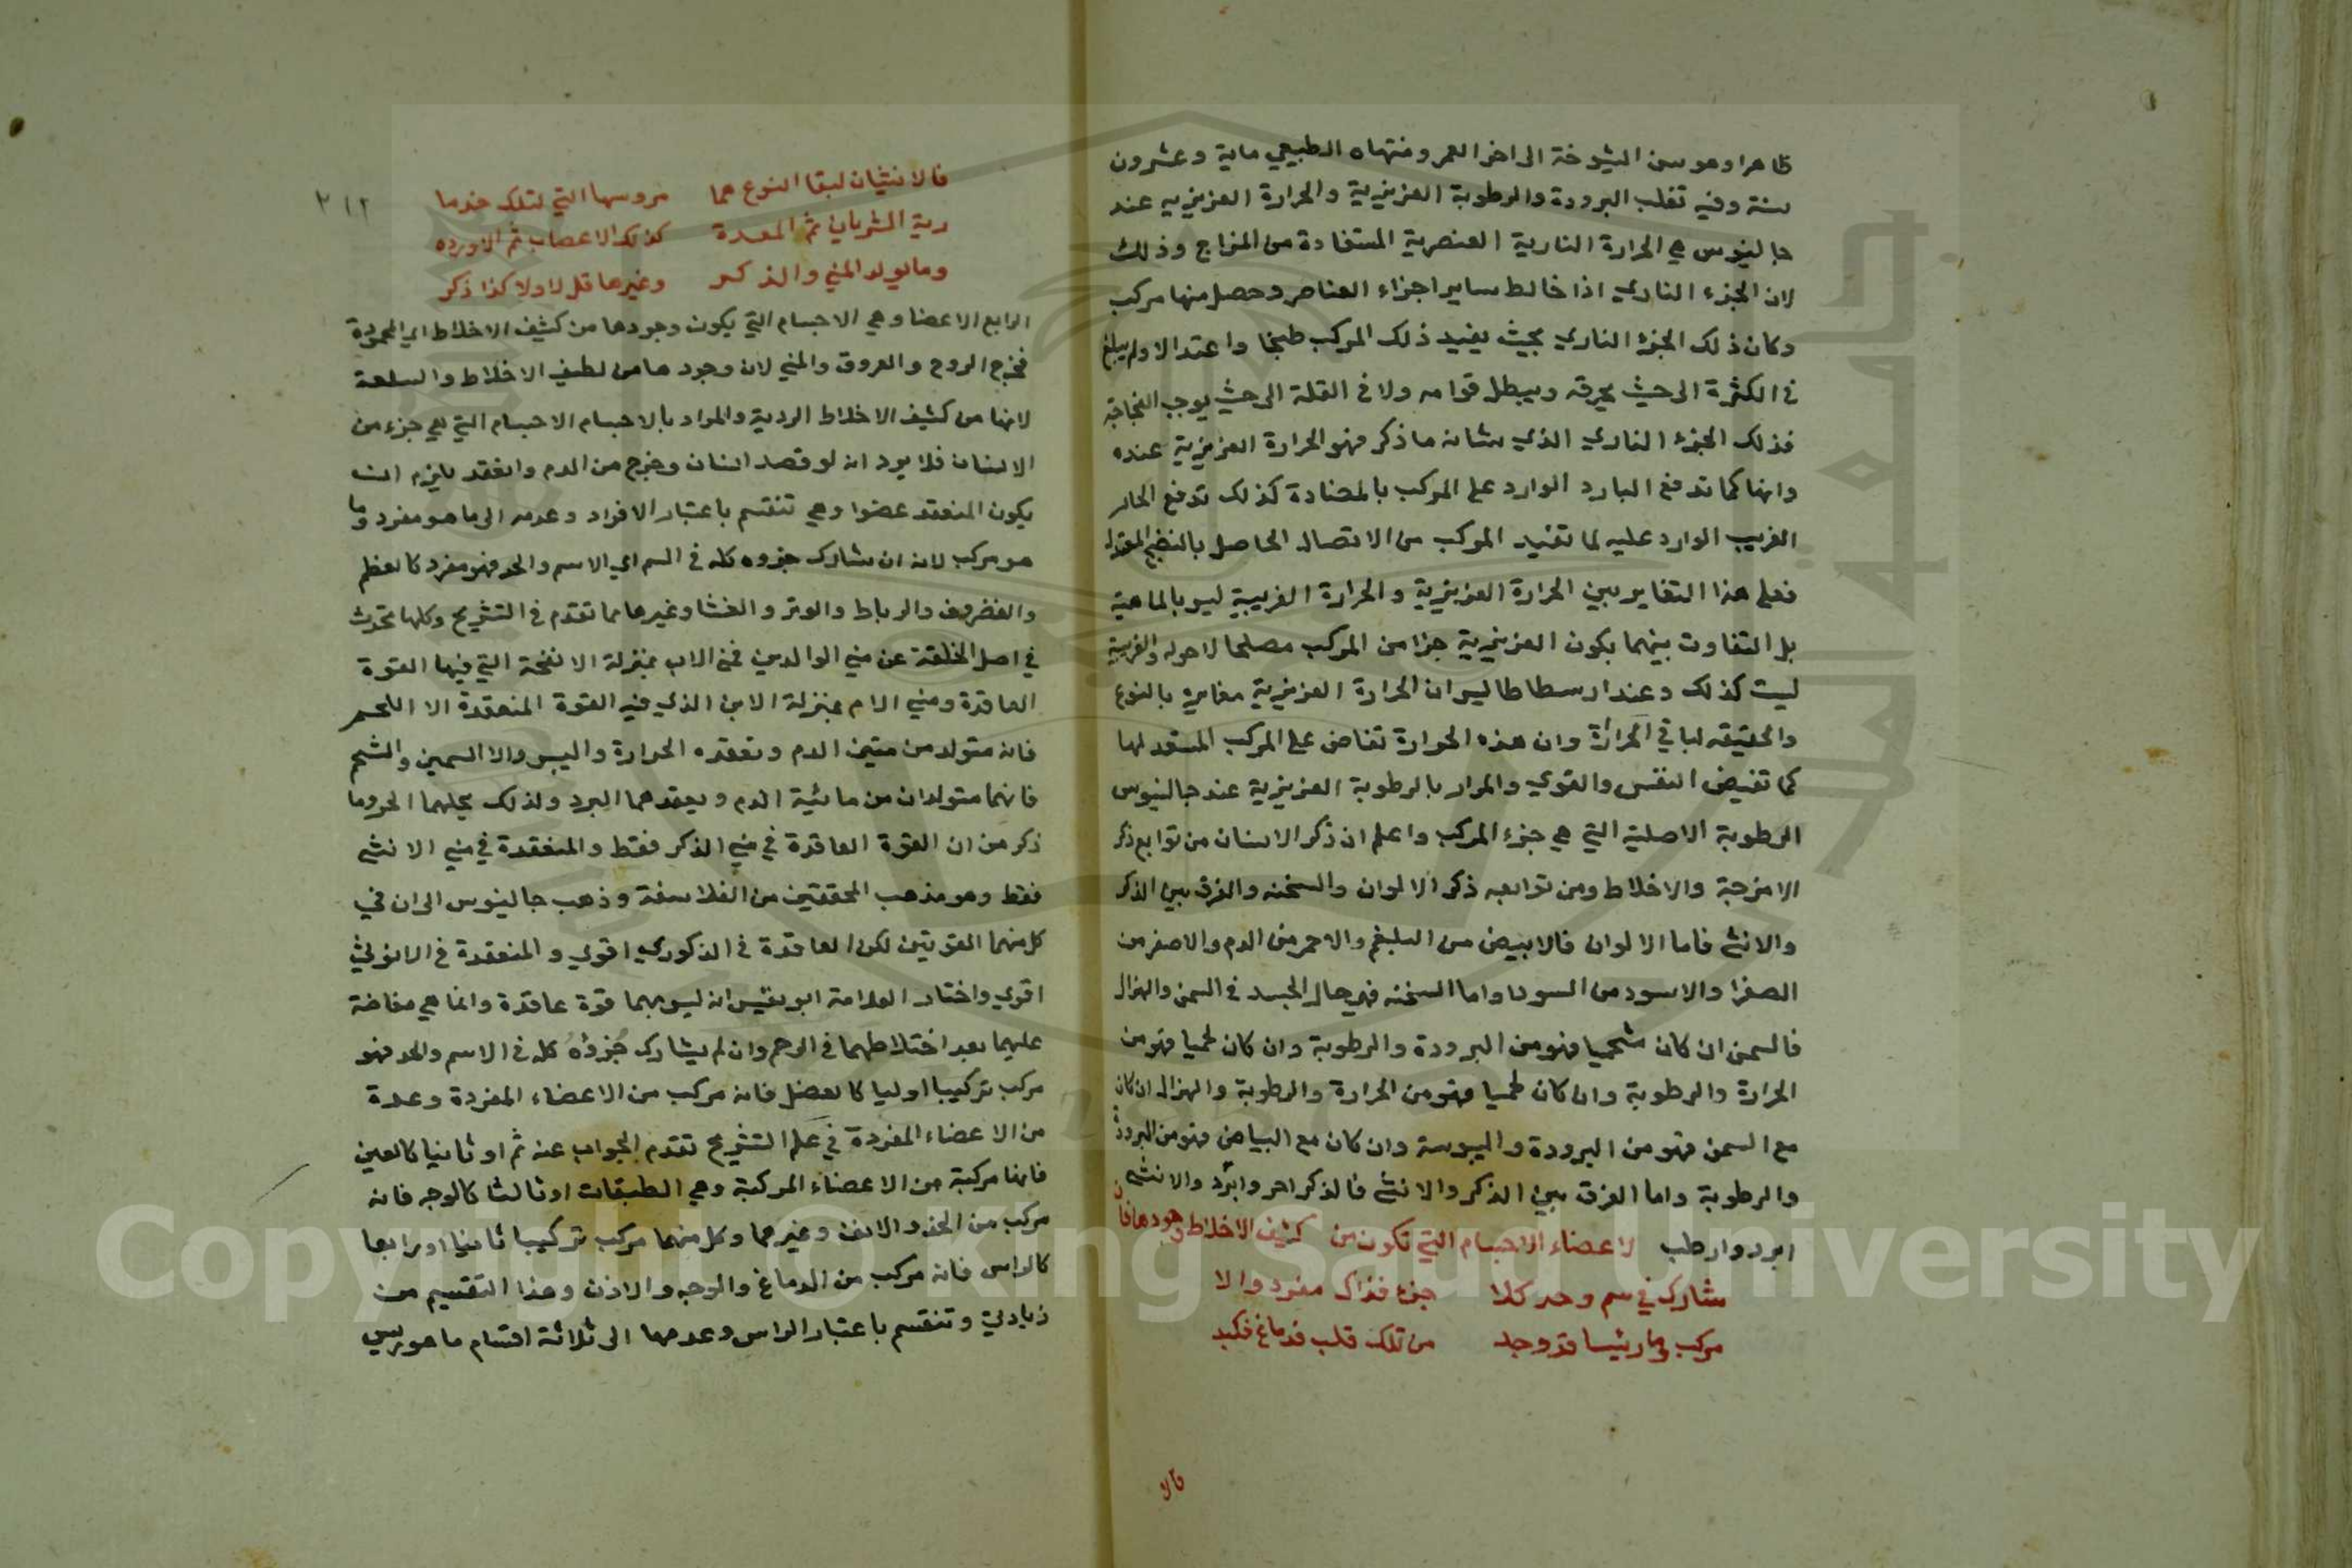 ظاهرا وهو سن الشيوخة الى اخر العمر ومنتهاه الطبيعي ماية وعشرون
سنة وفيه تغلب البرودة والرطوبة الغريزية والحرارة الغريزيه عند
جالينوس هي الحرارة النارية العنصرية المستفادة من المزاج وذلك
لان الجزء الناري اذا خالط ساير اجزاء العناصر وحصل منها مركب
وكان ذلك الجزء الناري بحيث يفيد ذلك المركب طبخا واعتدالا ولم يبلغ
في الكثرة الى حيث يحرقه ويبطل قوامه ولا في القلة الى حيث يوجب الفجاجة
فذلك الجزء الناري الذي شانه ما ذكر فهو الحرارة الغريزية عنده
وانها كما تدفع البارد الوارد على المركب بالمضادة كذلك تدفع الحار
الغريب الوارد عليه لما تفيد المركب من الاتصال الحاصل بالنضج
فعلى هذا التغاير بين الحرارة الغريزية والحرارة الغريبة ليس بالماهية
بل التفاوت بينهما بكون الغريزية جزا من المركب مصلحا لاحواله والغريبة
ليست كذلك وعند ارسطاطاليس ان الحرارة الغريزية مغايرة بالنوع
والحقيقه لباقي الحرارة وان هذه الحرارة تفاض على المركب المستعد لها
كما تفيض النفس والقوي والمراد بالرطوبة الغريزية عند جالينوس
الرطوبة الاصلية التي هي جزء المركب واعلم ان ذكر الاسنان من توابع ذكر
الامزجة والاخلاط ومن توابعه ذكر الالوان والسخنه والفرق بين الذكر
والانثى فاما الالوان فالابيض من البلغم والاحمر من الدم والاصفر من
الصفرا والاسود من السودا واما السخنه فهي حال الجسد في السمن والهزال
فالسمن ان كان شحميا فهو من البرودة والرطوبة وان كان لحميا فهو من
الحرارة والرطوبة وان كان لحميا فهو من الحرارة والرطوبة والهزال ان كان
مع السمن فهو من البرودة واليبوسة وان كان مع البياض فهو من البرودة
والرطوبة واما الفرق بين الذكر والانثى فالذكر احر وابرد والانثى
ابرد وارطب لاعضاء الاجسام التي تكون من كثيف الاخلاط وجودها فان
شارك في سم وحد كلا جزء فذاك مفرد والا
مركب وما رئيسا قد وجد من تلك قلب فدماغ فكبد
فالا
٢١٢
فالانثيان لبقا النوع هما مروسها التي لتلك خدما
رية الشريان ثم المعدة كذلك الاعصاب ثم الاورده
وما لولد المني والذكر وغيرها قل لا ولا كذا ذكر
الرابع الاعضا وهي الاجسام التي يكون وجودها من كثيف الاخلاط اي المحمودة
فخرج الروح والعروق والمني لان وجودها من لطيف الاخلاط والسلعة
لانها من كثيف الاخلاط الردية والمراد بالاجسام الاجسام التي هي جزء من
الانسان فلا يرد انه لو فصد انسان وخرج من الدم وانعقد يلزم ان
يكون المنعقد عضوا وهي تنقسم باعتبار الافراد وعدمه الى ما هو مفرد وما
هو مركب لانه ان شارك جزوه كله في السم اي الاسم والحد فهو مفرد كالعظم
والغضروف والرباط والوتر والغشا وغيرها مما تقدم في التشريح وكلها تحدث
في اصل الخلقة عن مني الوالدين فمني الاب بمنزلة الانفحة التي فيها القوة
العاقدة ومني الام بمنزلة الابن الذي فيه القوة المنعقدة الا اللحم
فانه متولد من متين الدم وتعقده الحرارة واليبس والا السمين والشحم
فانهما متولدان من مائية الدم ويعقدهما البرد ولذلك يحلهما الحر وما
ذكر من ان القوة العاقدة في مني الذكر فقط والمنعقدة في مني الانثى
فقط وهو مذهب المحققين من الفلاسفة وذهب جالينوس الى ان في
كل منهما القوتين لكن العاقدة في الذكوري اقوي والمنعقدة في الانوثي
اقوي واختار العلامة ابو نفيس انه ليس بهما قوة عاقدة وانما هي مفاضة
عليهما بعد اختلاطهما في الرحم وان لم يشارك جُزؤُه كله في الاسم والحد فهو
مركب تركيبا اوليا كالعضل فانه مركب من الاعضاء المفردة وعدة
من الاعضاء المفردة في علم التشريح تقدم الجواب عنه ثم او ثانيا كالعين
فانها مركبة من الاعضاء المركبة وهي الطبقات او ثالثا كالوجه فانه
مركب من الخد والانف وغيرهما وكل منهما مركب تركيبا ثانيا او رابعا
كالراس فانه مركب من الدماغ والوجه والاذن وهذا التقسيم من
زيادتي وتنقسم باعتبار الراس وعدمها الى ثلاثة اقسام ما هو ريس
Copyright © King Saud University